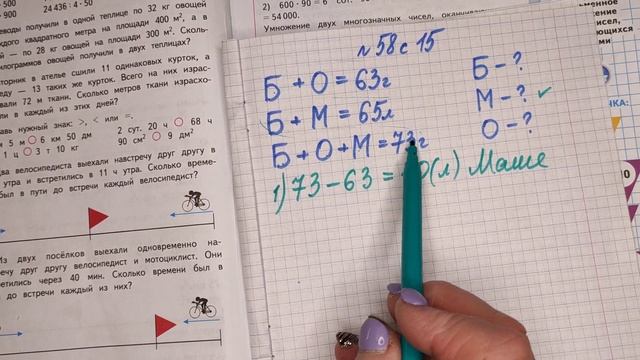 900
24 436 : 4 · 50
еводы получили в одной теплице по 32 кг овощей
ждого квадратного метра на площади 400 м², а в
й — по 28 кг овощей на площади 300 м². Сколь-
илограммов овощей получили в двух теплицах?
торник в ателье сшили 11 одинаковых курток, а
еду — 13 таких же курток. Всего на них израс-
вали 72 м ткани. Сколько метров ткани израсхо-
ли в каждый из этих дней?
авь нужный знак: >, < или =.
м 5 м 6 км 50 дм
2 сут. 20 ч 68 ч
1 ц 3 т 10 кг
90 см² 9 дм²
ва велосипедиста выехали навстречу друг другу в
утра и встретились в 11 ч утра. Сколько време-
был в пути до встречи каждый велосипедист?
Из двух посёлков выехали одновременно на-
ечу друг другу велосипедист и мотоциклист. Они
ретились через 40 мин. Сколько времени был в
до встречи каждый из них?
2) 600 · 90 = 6 сот.
= 54 000.
Умножение двух многозначных чисел,
№ 58 с 15
Б + О = 63г
Б + М = 65л
Б + О + М = 73г
Б - ?
М - ? ✓
О - ?
1) 73 - 63 = 10(л) Маше